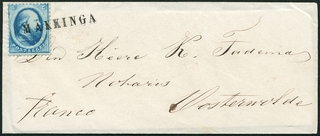 MAKKINGA
Den Heere R. Tadema
Notaris
Franco Oosterwolde